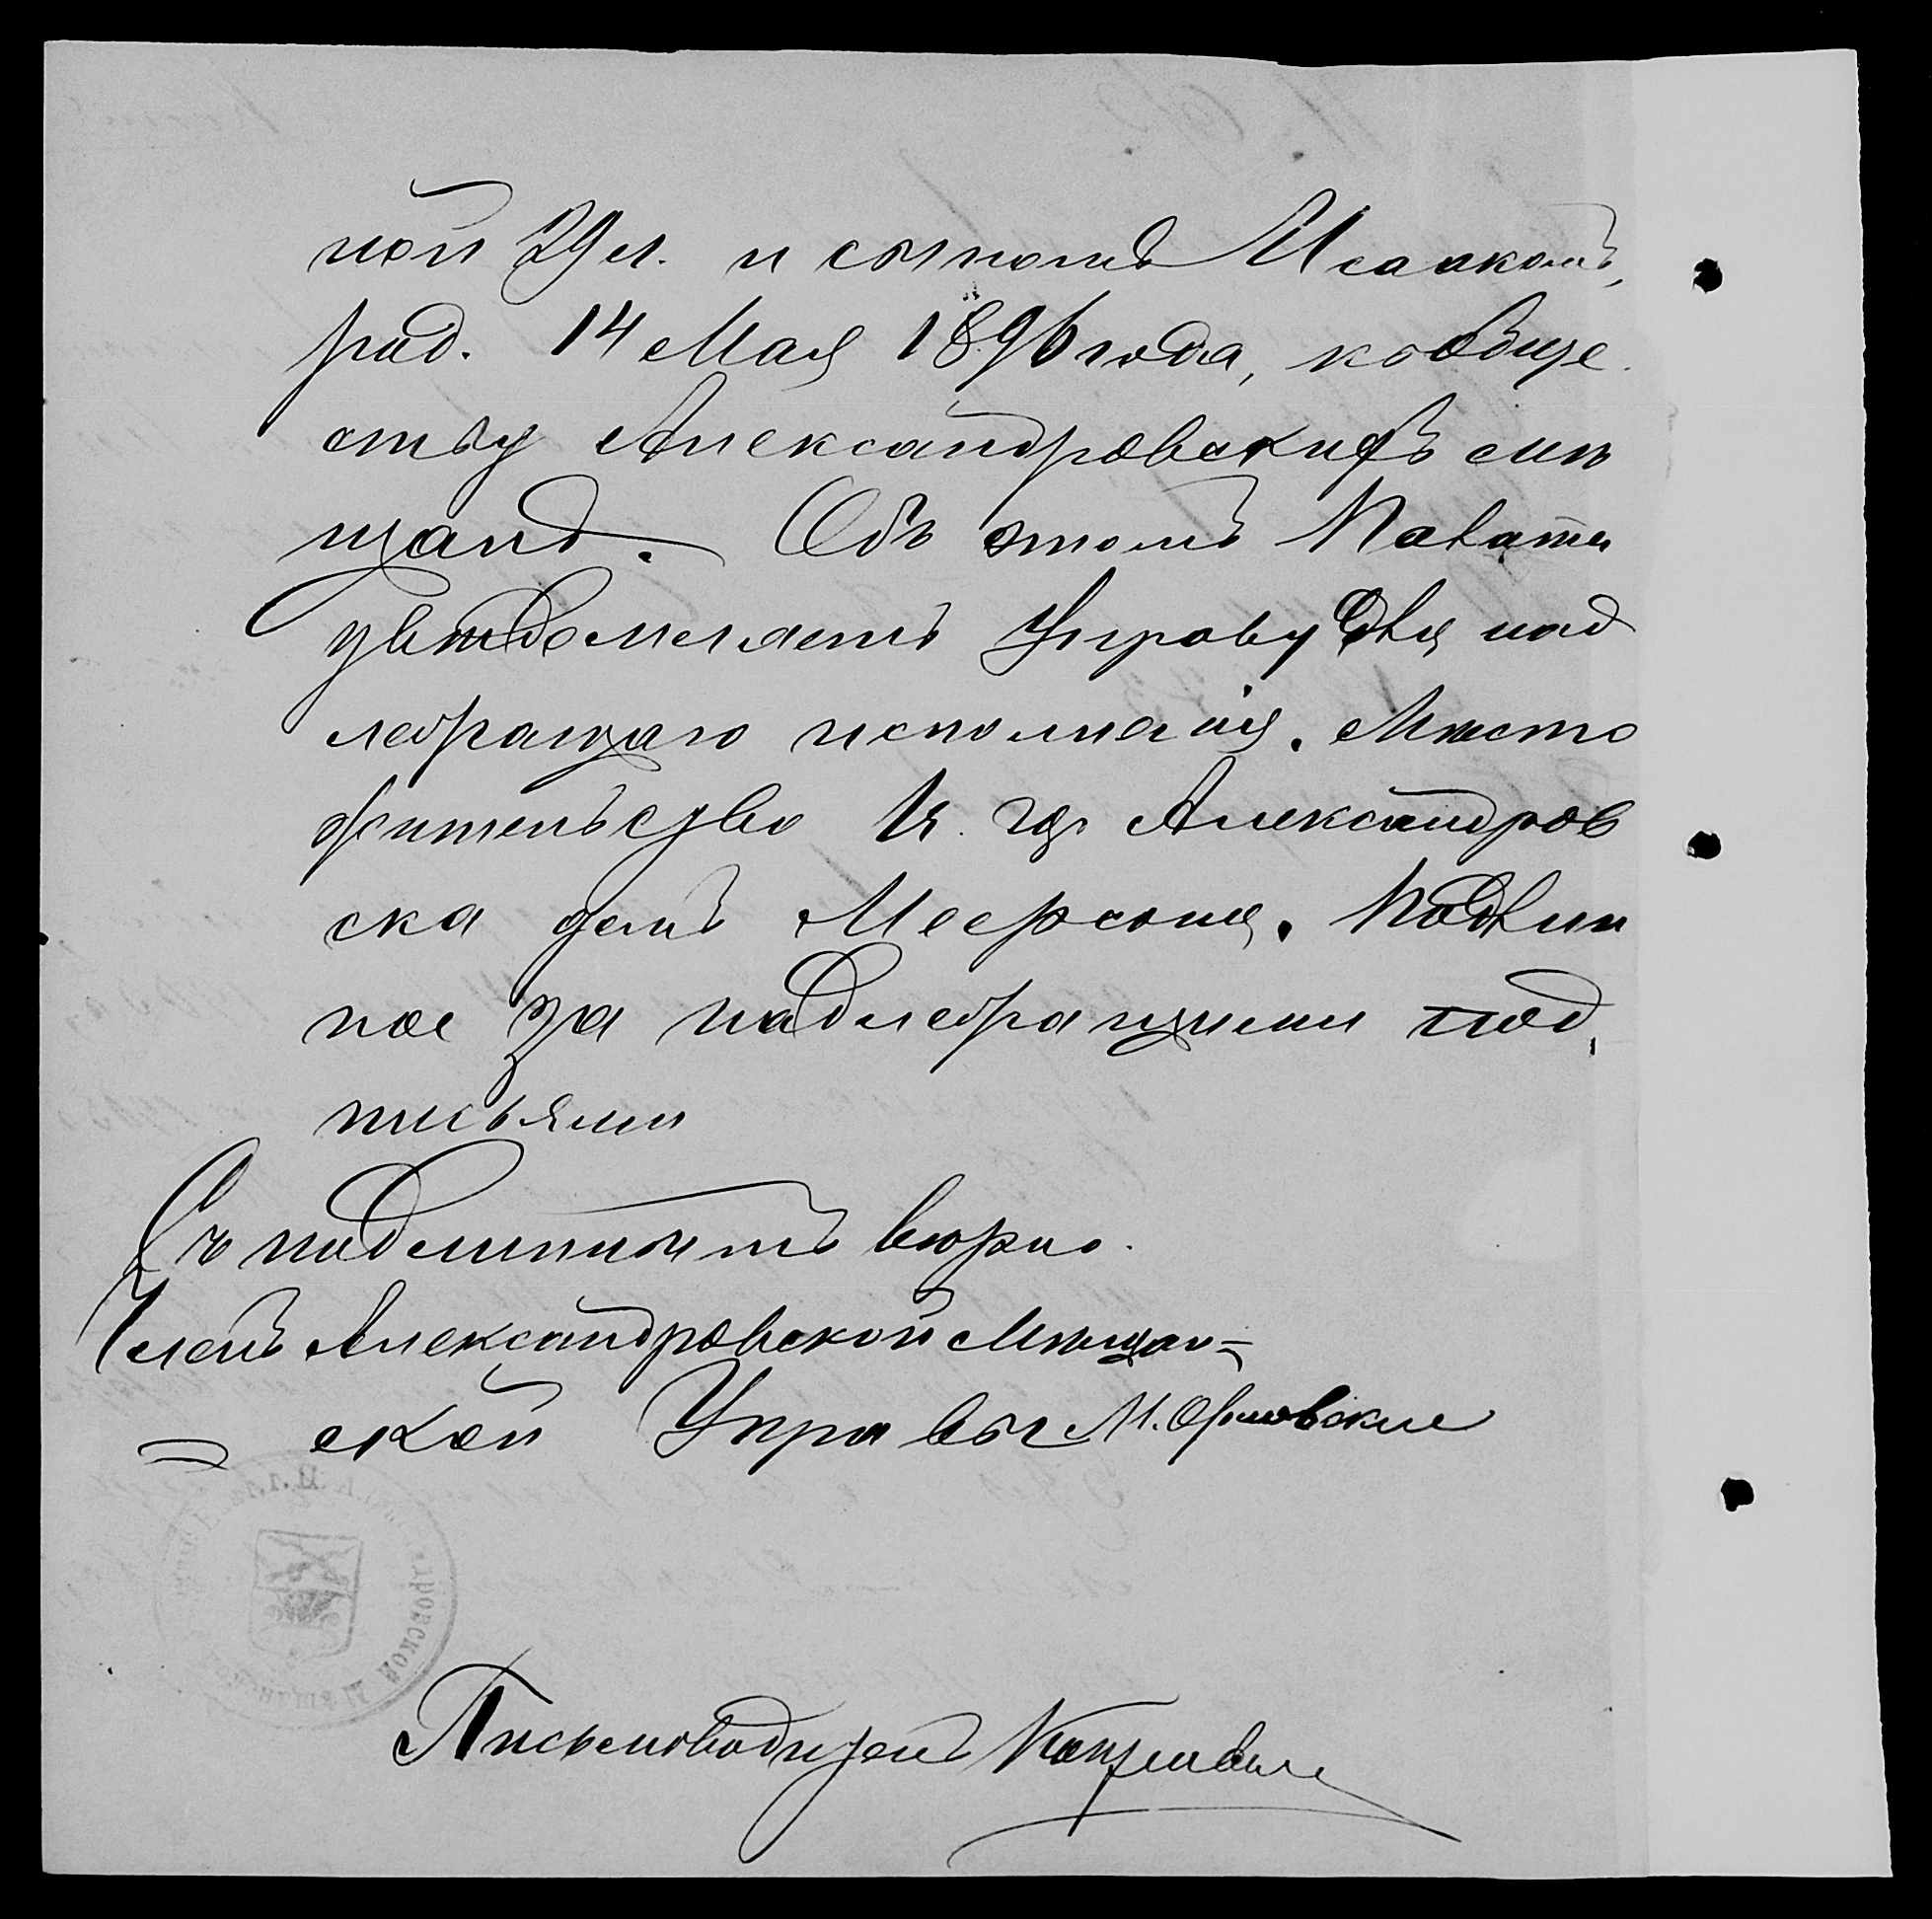 ной 29 л. и сыномъ Исаакомъ,
род. 14 Мая 1896 года, къ обще
ству Александровскихъ мѣ
щанъ. Объ этомъ Палата
увѣдомляетъ Управу для над
лежащаго исполненія. Мѣсто
жительство въ гор. Александров
ска домъ Меерсона. Подлин
ное за надлежащими под
письями
Съ подлиннымъ вѣрно.
Членъ Александровской Мѣщан=
= ской Управы М.
Письмоводитель